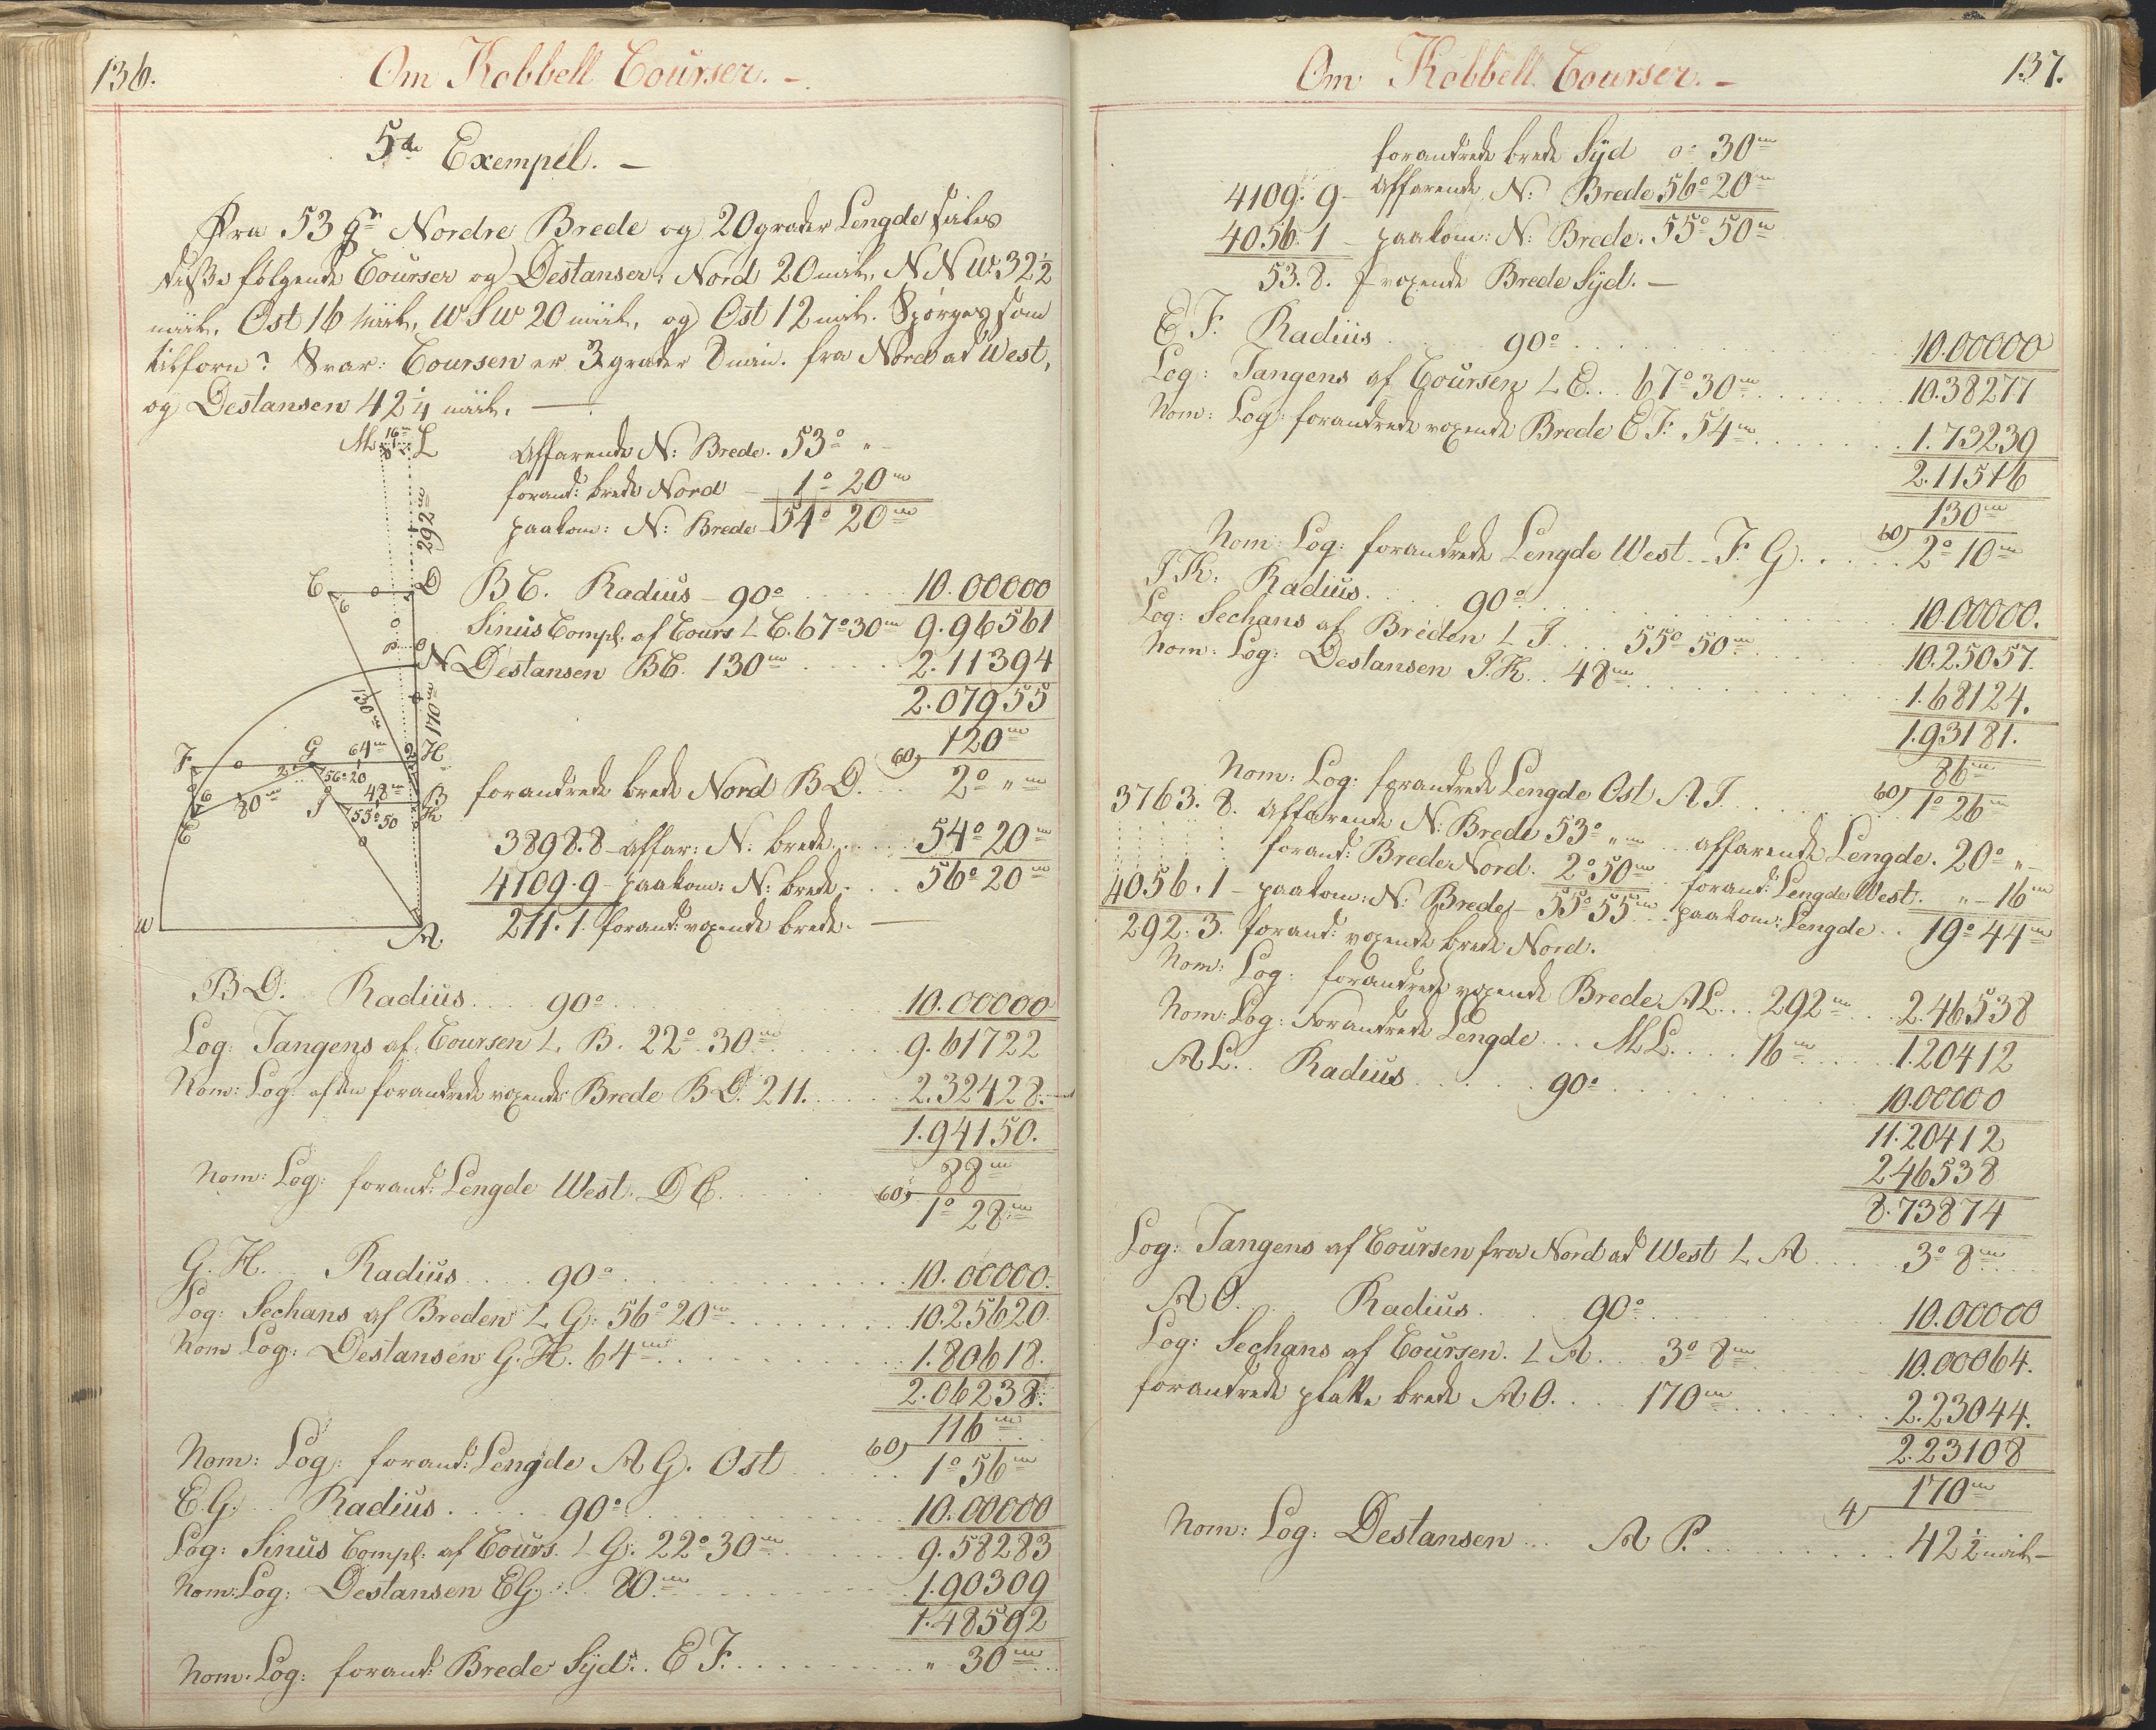 136.
Om Kobbell Courser. -
5te Exempel. -
Fra 53 gr Nordre Brede og 20 grader Lengde saales
disse følgende Courser og Destanser, Nord 20 miil, NNW. 32½
miil, Ost 16 Miil, WSW 20 miil, og Ost 12 miil. Spørges som
tilforn? Svar: Coursen er 3 grader 8 min. fra Nord ad West,
og Destansen 42¼ miil. —
M 16m L
292m
C D
N
130m
170m
F G 64m H
56°20
80m 48m B
E I 55°50 K
W A
Affarende N: Brede. 53° „ -
forand: brede Nord - 1° 20m
paakom: N: Brede - 54° 20m
BC. Radius - 90° 10.00000
Sinus Compl. af Cours L C. 67°30m 9.96561
Destansen BC. 130m 2.11394
2.07955
60) 120m
forandrede brede Nord BD. 2° „m
3898.8 - affar: N: brede. 54° 20m
4109.9 - paakom: N: brede. 56° 20m
211.1. forand: voxende brede. —
BD. Radius 90° 10.00000
Log: Tangens af Coursen L. B. 22° 30m 9.61722
Nom: Log: af den forandrede voxende Brede B.D. 211. 2.32428.
1.94150.
60) 88m
Nom: Log: forand: Lengde West. DC. 1° 28m
G.H. Radius 90° 10.00000.
Log: Sechans af Breden L G: 56°20m 10.25620
Nom Log: Destansen G.H. 64m 1.80618.
2.06238.
60) 116m
Nom: Log: forand: Lengde A G. Ost 1° 56m
E.G. Radius 90° 10.00000
Log: Sinus Compl: af Cours. L G. 22°30m 9.58283
Nom: Log: Destansen EG. 80m 1.90309
1.48592
Nom. Log: forand: Brede Syd. E F. „ 30m
137.
Om Kobbell Courser. -
forandrede brede Syd 0° 30m
4109.9 - Affarende N: Brede 56° 20m
4056.1 - paakom: N: Brede. 55° 50m
53.8. voxende Brede Syd. -
E F. Radius 90° 10.00000
Log: Tangens af Coursen L E. 67°30m 10.38277
Nom: Log: forandrede voxende Brede E F. 54m 1.73239
2.11516
60) 130m
Nom: Log: forandrede Lengde West - F G. 2° 10m
I K: Radius 90° 10.00000.
Log: Sechans af Breden L I 55° 50m 10.25057.
Nom: Log: Destansen I.K. 48m 1.68124.
1.93181.
60) 86m
Nom: Log: forandrede Lengde Ost A I. 1° 26m
3763.8. affarende N: Brede 53° „m affarende Lengde. 20° „ -
forand: Brede Nord. 2°50m forand: Lengde West. „ - 16m
4056.1 - paakom: N: Brede - 55°55m paakom: Lengde 19° 44m
292.3. forand: voxende brede Nord.
Nom: Log: forandrede voxende Brede AL. 292m 2.46538
Nom: Log: Forandrede Lengde ML. 16m 1.20412
AL. Radius 90° 10.00000
11.20412
2.46538
8.73874
Log: Tangens af Coursen fra Nord ad West L A 3° 8m
A O. Radius 90° 10.00000
Log: Sechans af Coursen. L A 3° 8m 10.00064.
forandrede platte brede A O. 170m 2.23044.
2.23108
4) 170m
Nom: Log: Destansen A P. 42½ miil -